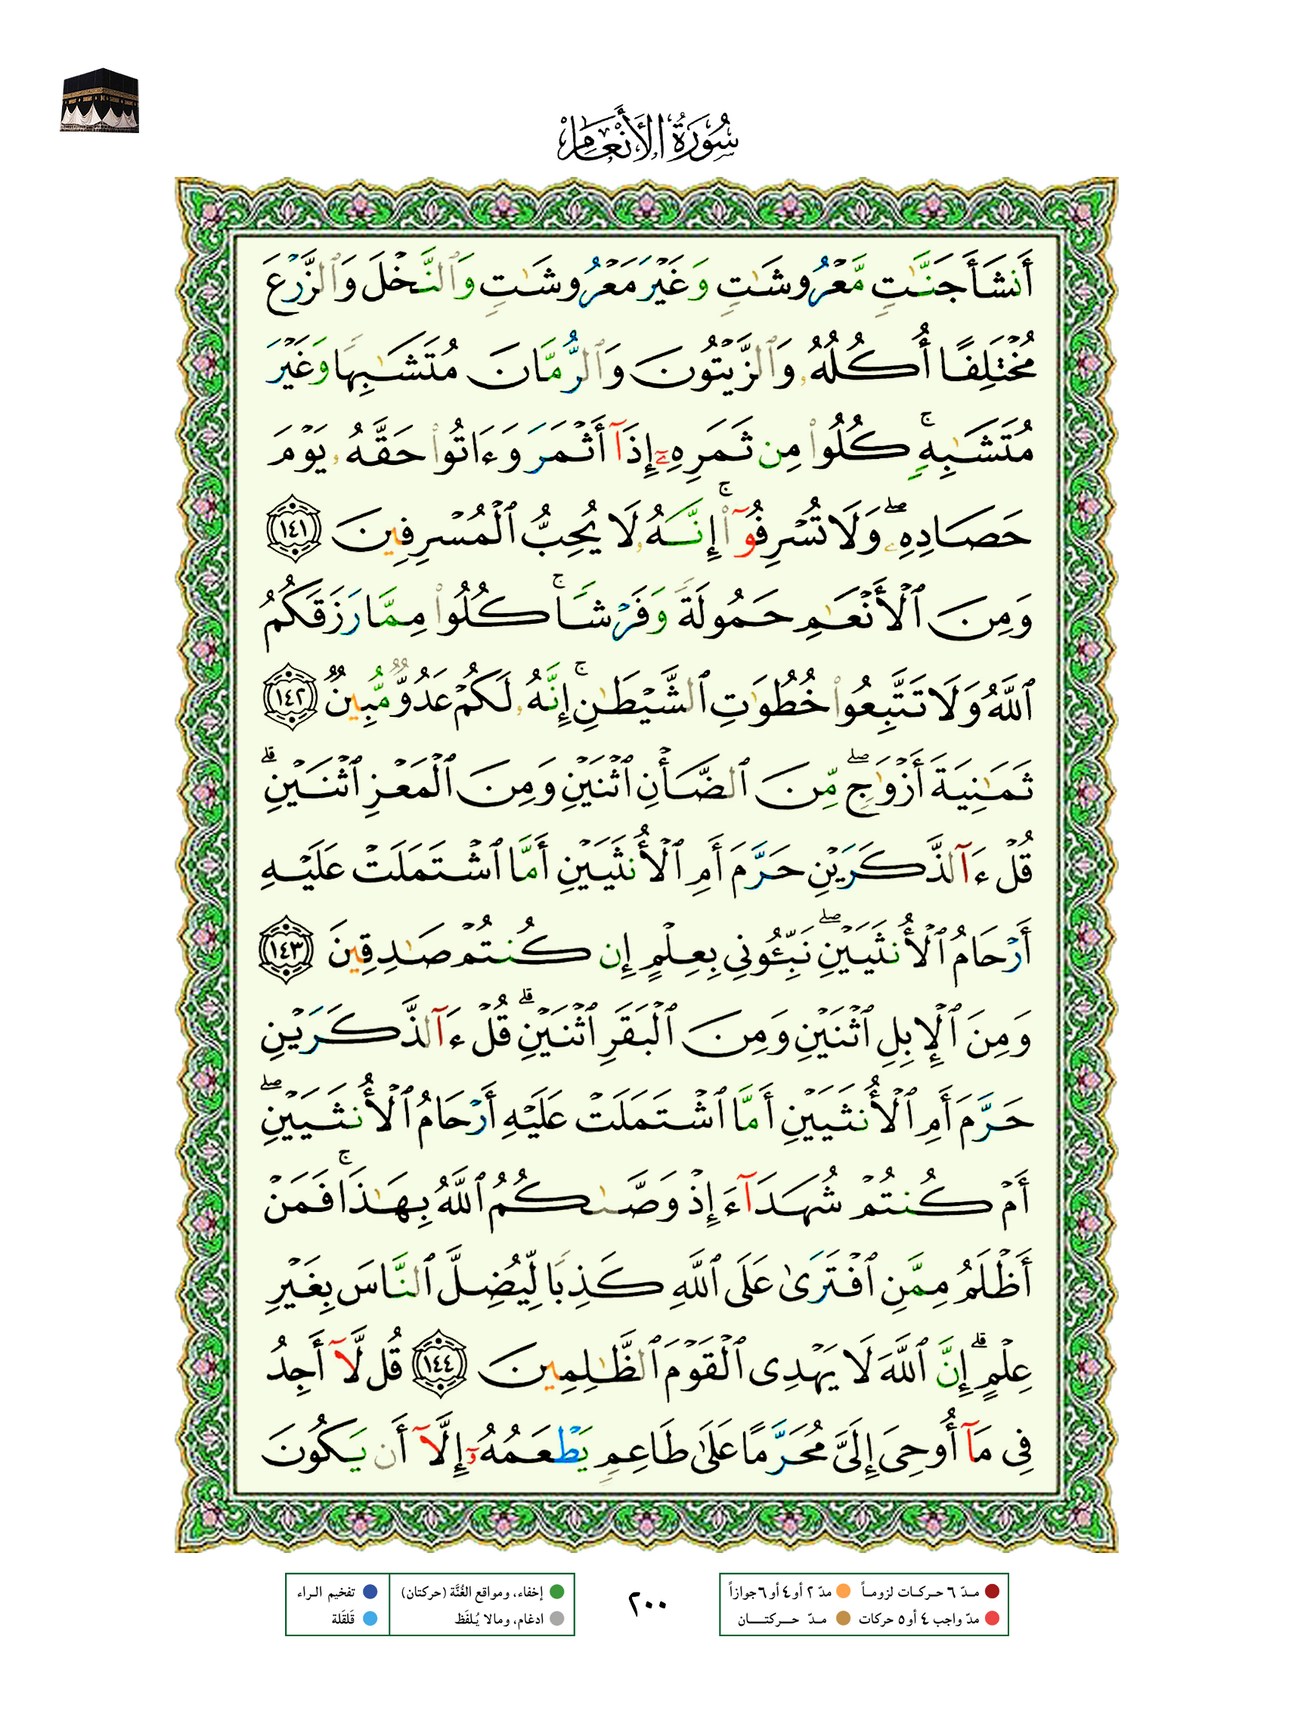 سُورَةُ الأَنْعَامِ
أَنشَأَ جَنَّٰتٖ مَّعۡرُوشَٰتٖ وَغَيۡرَ مَعۡرُوشَٰتٖ وَٱلنَّخۡلَ وَٱلزَّرۡعَ
مُخۡتَلِفًا أُكُلُهُۥ وَٱلزَّيۡتُونَ وَٱلرُّمَّانَ مُتَشَٰبِهٗا وَغَيۡرَ
مُتَشَٰبِهٖۚ كُلُواْ مِن ثَمَرِهِۦٓ إِذَآ أَثۡمَرَ وَءَاتُواْ حَقَّهُۥ يَوۡمَ
حَصَادِهِۦۖ وَلَا تُسۡرِفُوٓاْۚ إِنَّهُۥ لَا يُحِبُّ ٱلۡمُسۡرِفِينَ ١٤١
وَمِنَ ٱلۡأَنۡعَٰمِ حَمُولَةٗ وَفَرۡشٗاۚ كُلُواْ مِمَّا رَزَقَكُمُ
ٱللَّهُ وَلَا تَتَّبِعُواْ خُطُوَٰتِ ٱلشَّيۡطَٰنِۚ إِنَّهُۥ لَكُمۡ عَدُوّٞ مُّبِينٞ ١٤٢
ثَمَٰنِيَةَ أَزۡوَٰجٖۖ مِّنَ ٱلضَّأۡنِ ٱثۡنَيۡنِ وَمِنَ ٱلۡمَعۡزِ ٱثۡنَيۡنِۗ
قُلۡ ءَآلذَّكَرَيۡنِ حَرَّمَ أَمِ ٱلۡأُنثَيَيۡنِ أَمَّا ٱشۡتَمَلَتۡ عَلَيۡهِ
أَرۡحَامُ ٱلۡأُنثَيَيۡنِۖ نَبِّـُٔونِي بِعِلۡمٍ إِن كُنتُمۡ صَٰدِقِينَ ١٤٣
وَمِنَ ٱلۡإِبِلِ ٱثۡنَيۡنِ وَمِنَ ٱلۡبَقَرِ ٱثۡنَيۡنِۗ قُلۡ ءَآلذَّكَرَيۡنِ
حَرَّمَ أَمِ ٱلۡأُنثَيَيۡنِ أَمَّا ٱشۡتَمَلَتۡ عَلَيۡهِ أَرۡحَامُ ٱلۡأُنثَيَيۡنِۖ
أَمۡ كُنتُمۡ شُهَدَآءَ إِذۡ وَصَّىٰكُمُ ٱللَّهُ بِهَٰذَاۚ فَمَنۡ
أَظۡلَمُ مِمَّنِ ٱفۡتَرَىٰ عَلَى ٱللَّهِ كَذِبٗا لِّيُضِلَّ ٱلنَّاسَ بِغَيۡرِ
عِلۡمٍۗ إِنَّ ٱللَّهَ لَا يَهۡدِي ٱلۡقَوۡمَ ٱلظَّٰلِمِينَ ١٤٤ قُل لَّآ أَجِدُ
فِي مَآ أُوحِيَ إِلَيَّ مُحَرَّمًا عَلَىٰ طَاعِمٖ يَطۡعَمُهُۥٓ إِلَّآ أَن يَكُونَ
مدّ ٦ حركات لزوماً مدّ ٢ أو ٤ أو ٦ جوازاً
مدّ واجب ٤ أو ٥ حركات مدّ حركتان
٢٠٠
إخفاء، ومواقع الغُنَّة (حركتان) تفخيم الراء
ادغام، ومالا يُلفَظ قلقلة